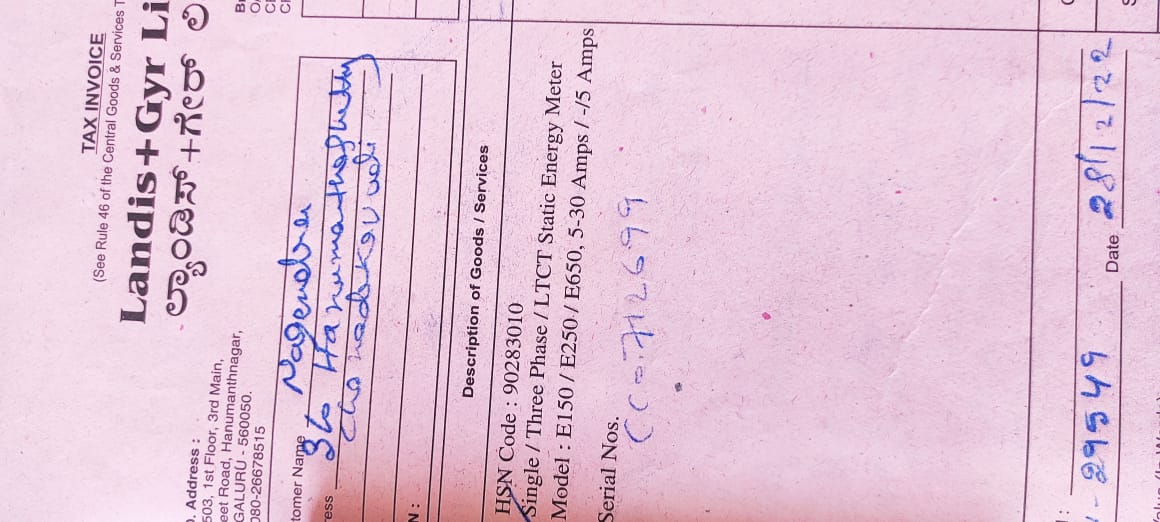 TAX INVOICE
(See Rule 46 of the Central Goods & Services T
Landis+Gyr Li
ಲ್ಯಾಂಡಿಸ್+ಗೇರ್ ಲಿ
. Address :
503, 1st Floor, 3rd Main,
eet Road, Hanumanthnagar,
GALURU - 560050.
080-26678515
tomer Name Nagendra
ress S/o Hanumanthashetty
N :
Description of Goods / Services
HSN Code : 90283010
Single / Three Phase / LTCT Static Energy Meter
Model : E150 / E250 / E650, 5-30 Amps / -/5 Amps
Serial Nos.
29549 Date 28/12/22